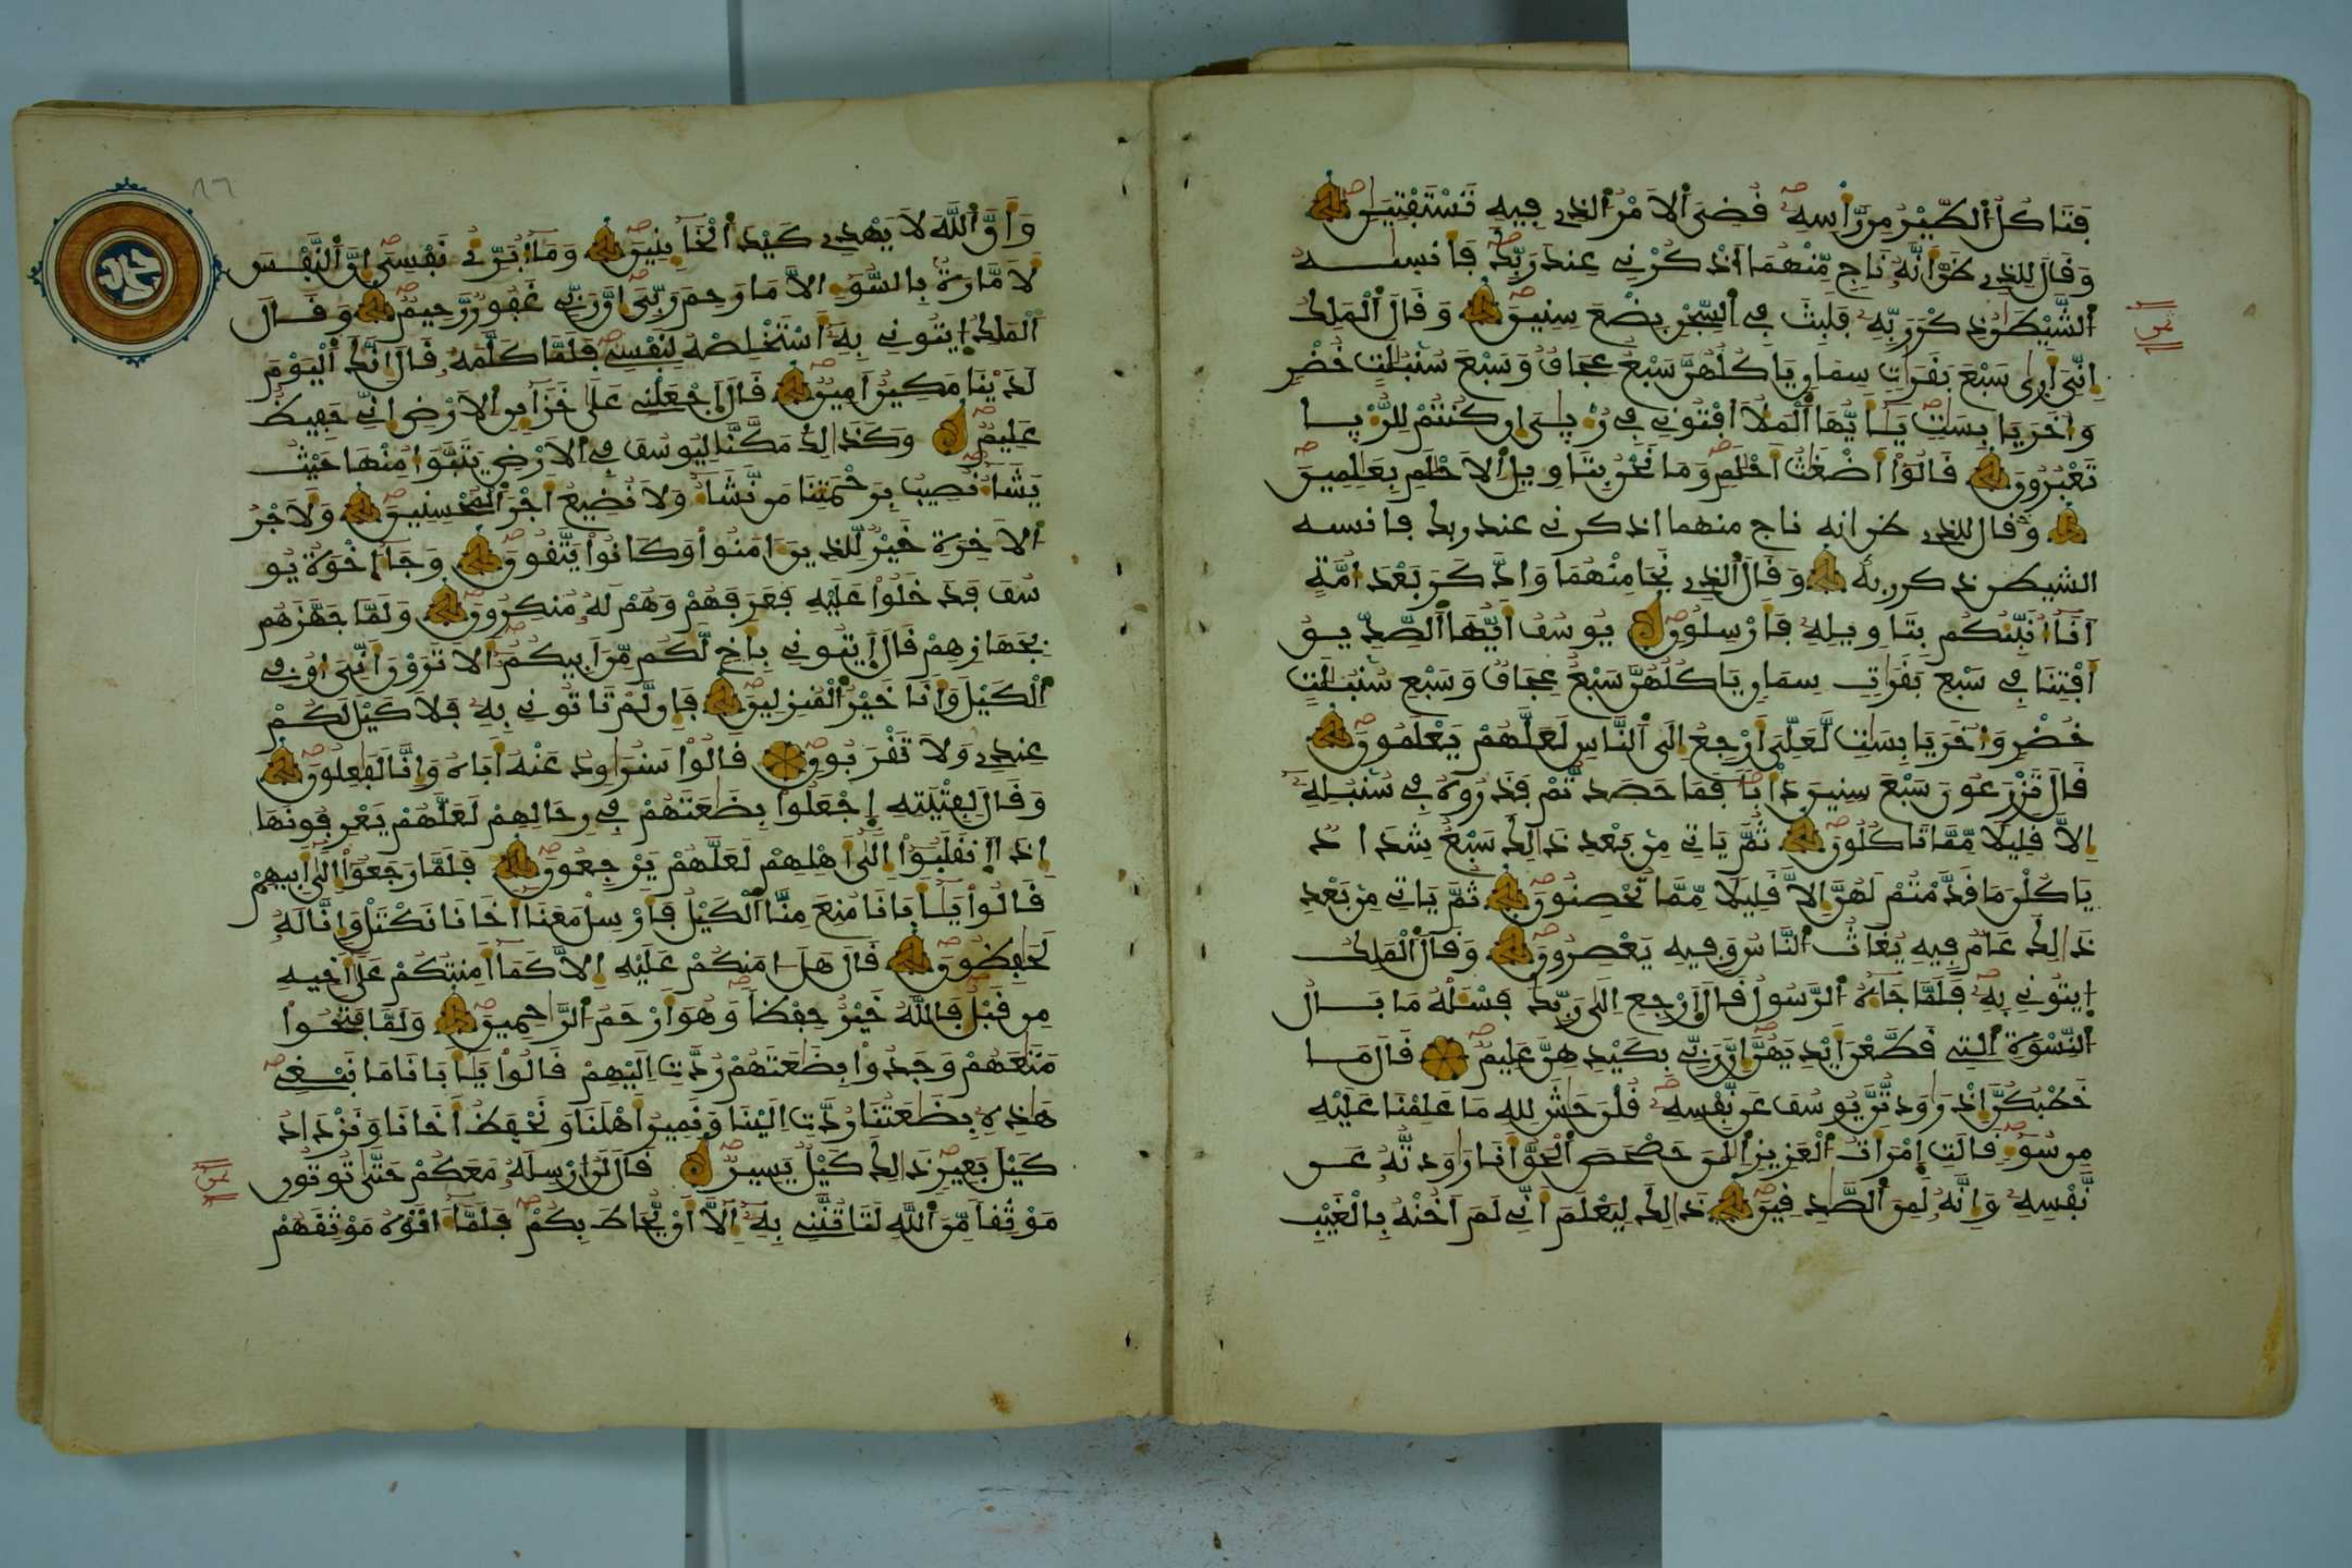 فَتَاكُلُ الطَّيْرُ مِن رَّأْسِهِ قُضِيَ الَامْرُ الذِے فِيهِ تَسْتَفْتِيَٰنِ
وَقَالَ لِلذِے ظَنَّ أَنَّهُ نَاجٍ مِّنْهُمَا اَذْكُرْنِے عِندَ رَبِّكَ فَأَنسٰىهُ
الشَّيْطَٰنُ ذِكْرَ رَبِّهِ فَلَبِثَ فِے السِّجْنِ بِضْعَ سِنِينَ وَقَالَ الْمَلِكُ
إِنِّيَ أَرٰى سَبْعَ بَقَرَٰتٍ سِمَانٍ يَاكُلُهُنَّ سَبْعٌ عِجَافٌ وَسَبْعَ سُنۢبُلَٰتٍ خُضْرٍ
وَأُخَرَ يَابِسَٰتٍ يَٰأَيُّهَا الْمَلَأُ افْتُونِے فِے رُءْيَٰىَ إِن كُنتُمْ لِلرُّءْيَا
تَعْبُرُونَ قَالُواْ أَضْغَٰثُ أَحْلَٰمٍ وَمَا نَحْنُ بِتَاوِيلِ الَاحْلَٰمِ بِعَٰلِمِينَ
وقال للذے ظن انه ناج منهما اذكرنے عند ربك فانسه
الشيطن ذكر ربه وَقَالَ الذِے نَجَا مِنْهُمَا وَادَّكَرَ بَعْدَ أُمَّةٍ
أَنَا أُنَبِّئُكُم بِتَاوِيلِهِ فَأَرْسِلُونِ يُوسُفُ أَيُّهَا الصِّدِّيقُ
أَفْتِنَا فِے سَبْعِ بَقَرَٰتٍ سِمَانٍ يَاكُلُهُنَّ سَبْعٌ عِجَافٌ وَسَبْعِ سُنۢبُلَٰتٍ
خُضْرٍ وَأُخَرَ يَابِسَٰتٍ لَّعَلِّيَ أَرْجِعُ إِلَى النَّاسِ لَعَلَّهُمْ يَعْلَمُونَ
قَالَ تَزْرَعُونَ سَبْعَ سِنِينَ دَأْبًا فَمَا حَصَدتُّمْ فَذَرُوهُ فِے سُنۢبُلِهِ
إِلَّا قَلِيلًا مِّمَّا تَاكُلُونَ ثُمَّ يَاتِے مِنۢ بَعْدِ ذَٰلِكَ سَبْعٌ شِدَادٌ
يَاكُلْنَ مَا قَدَّمْتُمْ لَهُنَّ إِلَّا قَلِيلًا مِّمَّا تُحْصِنُونَ ثُمَّ يَاتِے مِنۢ بَعْدِ
ذَٰلِكَ عَامٌ فِيهِ يُغَاثُ النَّاسُ وَفِيهِ يَعْصِرُونَ وَقَالَ الْمَلِكُ
إِيتُونِے بِهِ فَلَمَّا جَاءَهُ الرَّسُولُ قَالَ اَرْجِعِ اِلَىٰ رَبِّكَ فَسْـَٔلْهُ مَا بَالُ
النِّسْوَةِ التِے قَطَّعْنَ أَيْدِيَهُنَّ إِنَّ رَبِّے بِكَيْدِهِنَّ عَلِيمٌ قَالَ مَا
خَطْبُكُنَّ إِذْ رَٰوَدتُّنَّ يُوسُفَ عَن نَّفْسِهِ قُلْنَ حَٰشَ لِلهِ مَا عَلِمْنَا عَلَيْهِ
مِن سُوءٍ قَالَتِ اِمْرَأَتُ الْعَزِيزِ الَٰنَ حَصْحَصَ الْحَقُّ أَنَا رَٰوَدتُّهُ عَن
نَّفْسِهِ وَإِنَّهُ لَمِنَ الصَّٰدِقِينَ ذَٰلِكَ لِيَعْلَمَ أَنِّے لَمَ اَخُنْهُ بِالْغَيْبِ
وَأَنَّ اللَّهَ لَا يَهْدِے كَيْدَ الْخَآئِنِينَ وَمَا أُبَرِّئُ نَفْسِيَ إِنَّ النَّفْسَ
لَأَمَّارَةٌ بِالسُّوءِ إِلَّا مَا رَحِمَ رَبِّيَ إِنَّ رَبِّے غَفُورٌ رَّحِيمٌ وَقَالَ
الْمَلِكُ إِيتُونِے بِهِ أَسْتَخْلِصْهُ لِنَفْسِے فَلَمَّا كَلَّمَهُ قَالَ إِنَّكَ الْيَوْمَ
لَدَيْنَا مَكِينٌ أَمِينٌ قَالَ اَجْعَلْنِے عَلَىٰ خَزَآئِنِ الَارْضِ إِنِّے حَفِيظٌ
عَلِيمٌ وَكَذَٰلِكَ مَكَّنَّا لِيُوسُفَ فِے الَارْضِ يَتَبَوَّأُ مِنْهَا حَيْثُ
يَشَاءُ نُصِيبُ بِرَحْمَتِنَا مَن نَّشَاءُ وَلَا نُضِيعُ أَجْرَ الْمُحْسِنِينَ وَلَأَجْرُ
الَاخِرَةِ خَيْرٌ لِّلذِينَ ءَامَنُواْ وَكَانُواْ يَتَّقُونَ وَجَاءَ إِخْوَةُ يُو
سُفَ فَدَخَلُواْ عَلَيْهِ فَعَرَفَهُمْ وَهُمْ لَهُ مُنكِرُونَ وَلَمَّا جَهَّزَهُم
بِجَهَازِهِمْ قَالَ إِيتُونِے بِأَخٍ لَّكُم مِّنَ اَبِيكُمُ أَلَا تَرَوْنَ أَنِّيَ أُوفِے
الْكَيْلَ وَأَنَا خَيْرُ الْمُنزِلِينَ فَإِن لَّمْ تَاتُونِے بِهِ فَلَا كَيْلَ لَكُمْ
عِندِے وَلَا تَقْرَبُونِ قَالُواْ سَنُرَٰوِدُ عَنْهُ أَبَاهُ وَإِنَّا لَفَٰعِلُونَ
وَقَالَ لِفِتْيَتِهِ إِجْعَلُواْ بِضَٰعَتَهُمْ فِے رِحَالِهِمْ لَعَلَّهُمْ يَعْرِفُونَهَا
إِذَا اَنقَلَبُواْ إِلَىٰ أَهْلِهِمْ لَعَلَّهُمْ يَرْجِعُونَ فَلَمَّا رَجَعُواْ إِلَىٰ أَبِيهِمْ
قَالُواْ يَٰأَبَانَا مُنِعَ مِنَّا الْكَيْلُ فَأَرْسِلْ مَعَنَا أَخَانَا نَكْتَلْ وَإِنَّا لَهُ
لَحَٰفِظُونَ قَالَ هَلَ اٰمَنُكُمْ عَلَيْهِ إِلَّا كَمَا أَمِنتُكُمْ عَلَىٰ أَخِيهِ
مِن قَبْلُ فَاللَّهُ خَيْرٌ حِفْظًا وَهُوَ أَرْحَمُ الرَّٰحِمِينَ وَلَمَّا فَتَحُواْ
مَتَٰعَهُمْ وَجَدُواْ بِضَٰعَتَهُمْ رُدَّتِ اِلَيْهِمْ قَالُواْ يَٰأَبَانَا مَا نَبْغِے
هَٰذِهِ بِضَٰعَتُنَا رُدَّتِ اِلَيْنَا وَنَمِيرُ أَهْلَنَا وَنَحْفَظُ أَخَانَا وَنَزْدَادُ
كَيْلَ بَعِيرٍ ذَٰلِكَ كَيْلٌ يَسِيرٌ قَالَ لَنُ ارْسِلَهُ مَعَكُمْ حَتَّىٰ تُوتُونِ
مَوْثِقًا مِّنَ اللَّهِ لَتَاتُنَّنِے بِهِ إِلَّا أَنْ يُّحَاطَ بِكُمْ فَلَمَّا ءَاتَوْهُ مَوْثِقَهُمْ